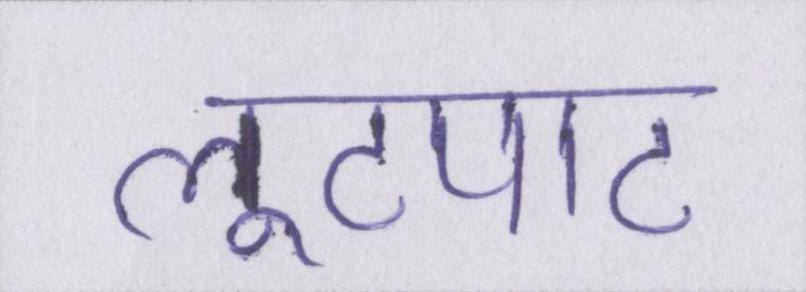 लूटपाट